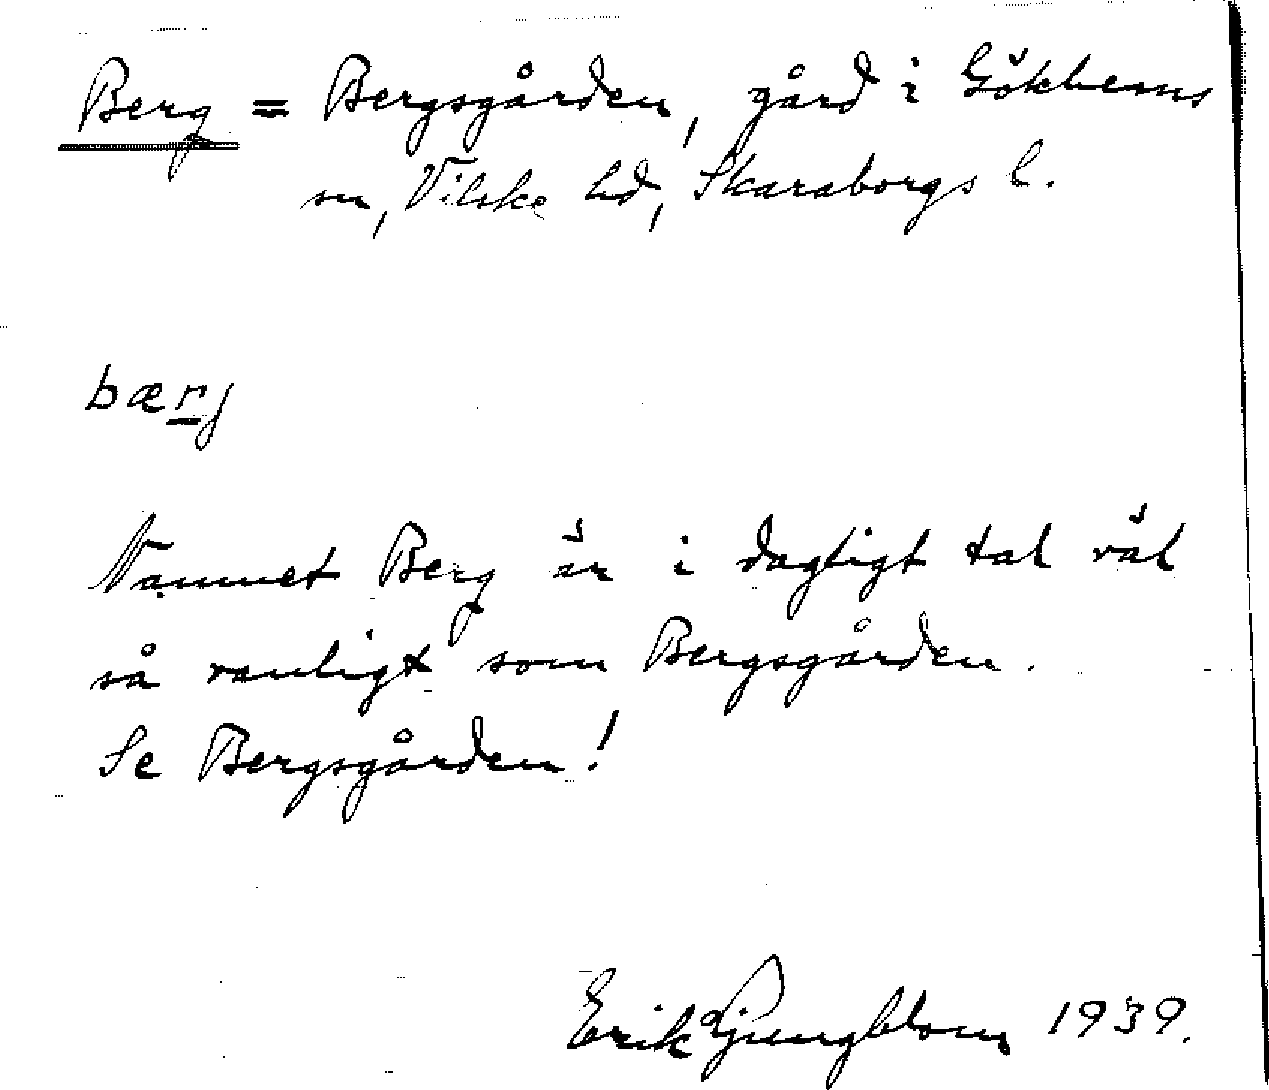 Berg = Bergsgården, gård i Gökhems
sn, Vilske hd, Skaraborgs l.
bærj
Namnet Berg är i dagligt tal väl
så vanligt som Bergsgården.
Se Bergsgården!
Erik Ljungblom 1939.